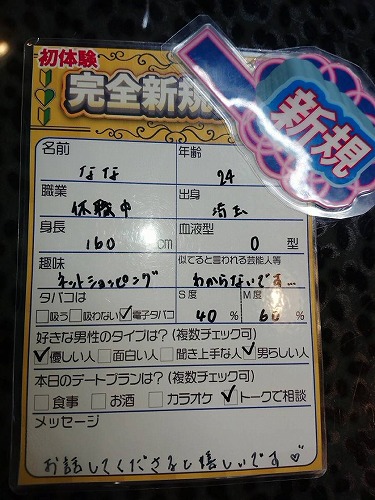 初体験
完全新規
新規
名前 なな 年齢 24
職業 休職中 出身 埼玉
身長 160 cm 血液型 O 型
趣味 ネットショッピング 似てると言われる芸能人等 わからないです…
タバコは □吸う □吸わない ☑電子タバコ S度 40 % M度 60 %
好きな男性のタイプは?(複数チェック可)
☑優しい人 □面白い人 □聞き上手な人 ☑男らしい人
本日のデートプランは?(複数チェック可)
□食事 □お酒 □カラオケ ☑トークで相談
メッセージ
お話してくださると嬉しいです♡